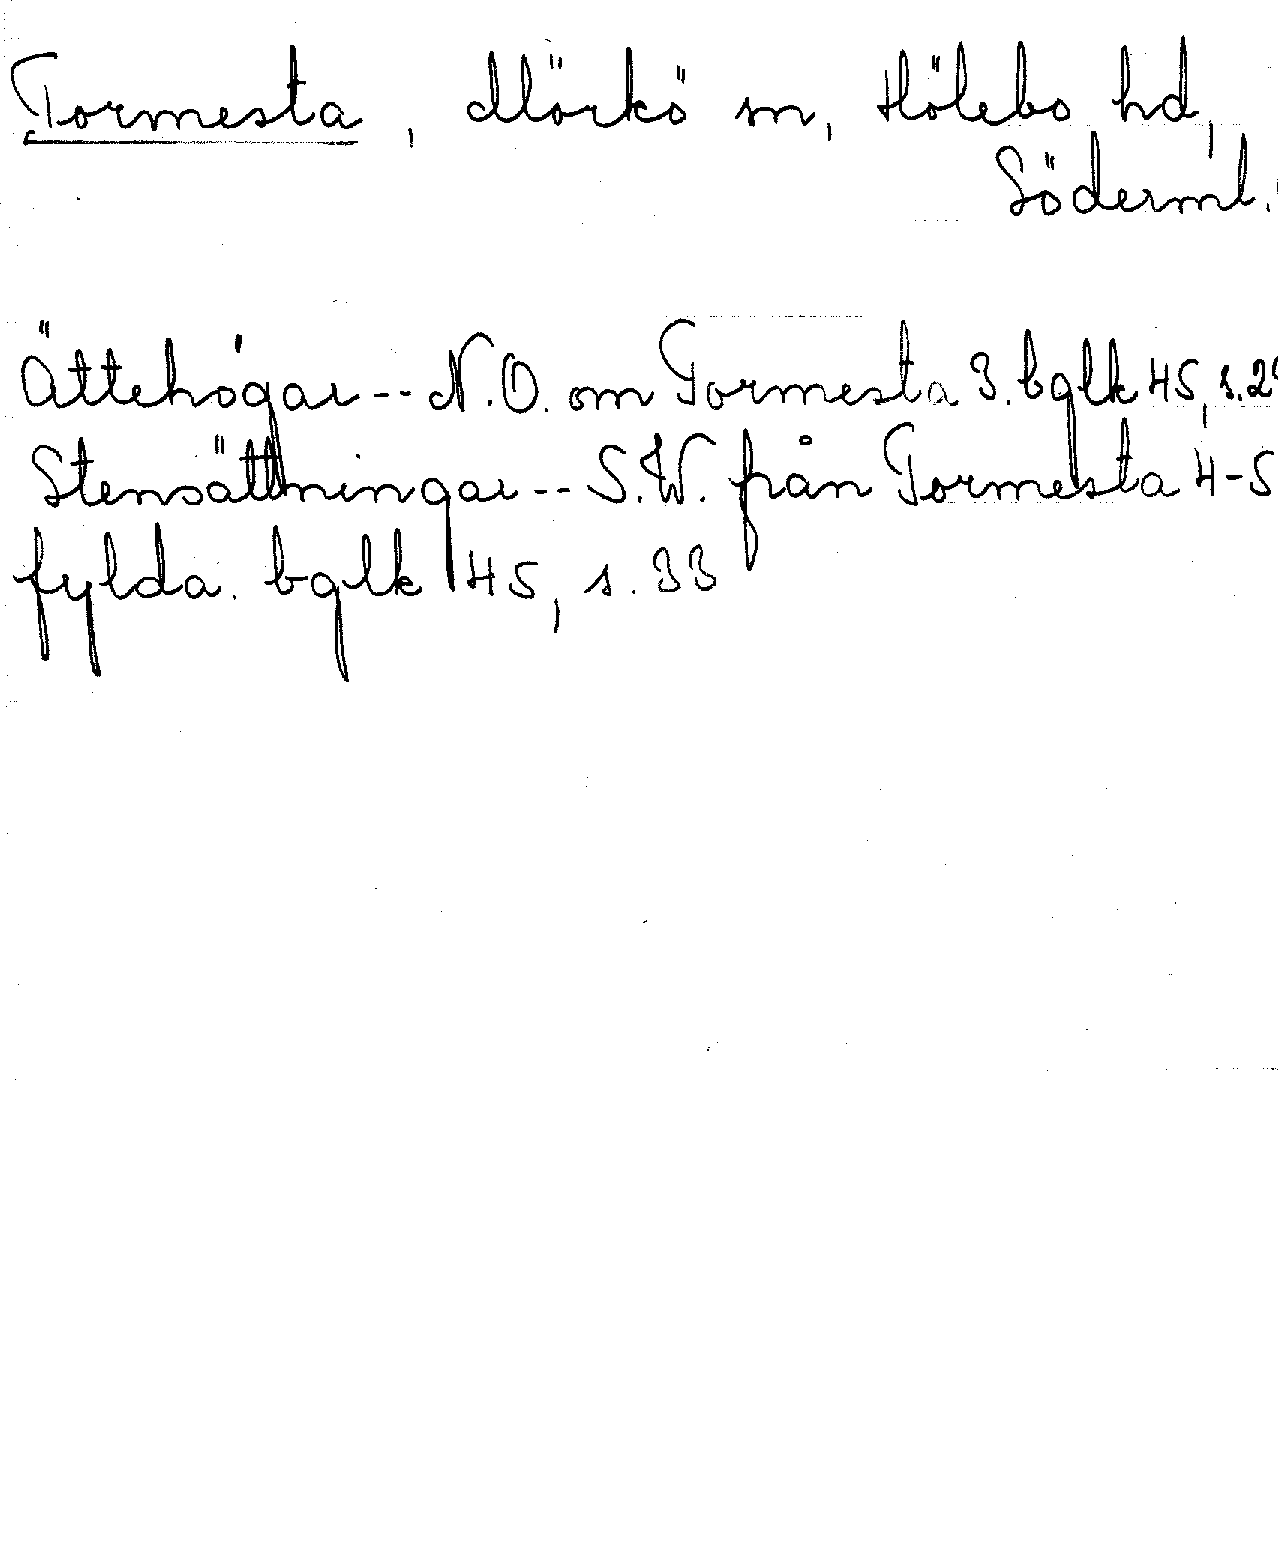 Tormesta, Mörkö sn, Hölebo hd,
Söderml.
Ättehögar -- N.O. om Tormesta 3. bglk 45, s.2
Stensättningar -- S.W. från Tormesta 4-5
fylda. bglk 45, s. 33